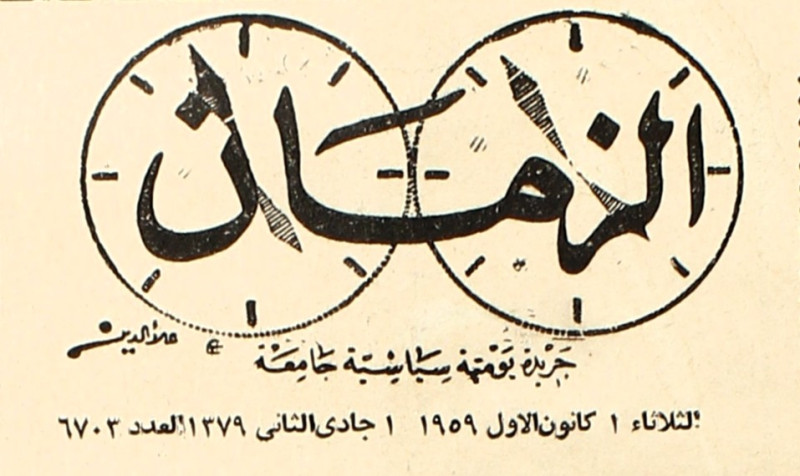 الزمان
علاء الدين
جريدة يومية سياسية جامعة
الثلاثاء ١ كانون الاول ١٩٥٩ ١ جمادى الثاني ١٣٧٩ العدد ٦٧٠٣